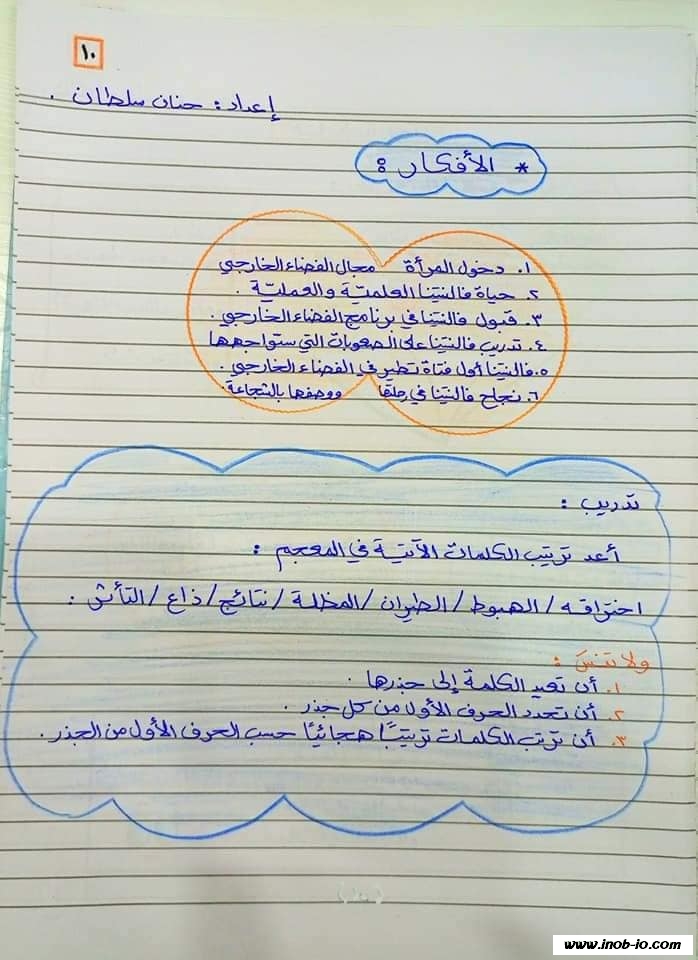 ١٠
إعداد: حنان سلطان.
* الأفكار:
١. دخول المرأة مجال الفضاء الخارجي
٢. حياة فالنتينا العلميّة والعمليّة.
٣. قبول فالنتينا في برنامج الفضاء الخارجي.
٤. تدريب فالنتينا على الصعوبات التي ستواجهها
٥. فالنتينا أول فتاة تطير في الفضاء الخارجي.
٦. نجاح فالنتينا في رحلتها ووصفها بالشجاعة.
تدريب:
أعد ترتيب الكلمات الآتية في المعجم:
اختراقه / الهبوط / الطيران / المظلة / نتائج / ذاع / التأثر:
ولا تنسَ:
١. أن تعيد الكلمة إلى جذرها.
٢. أن تحدد الحرف الأول من كل جذر.
٣. أن ترتب الكلمات ترتيبًا هجائيًا حسب الحرف الأول من الجذر.
www.inob-io.com